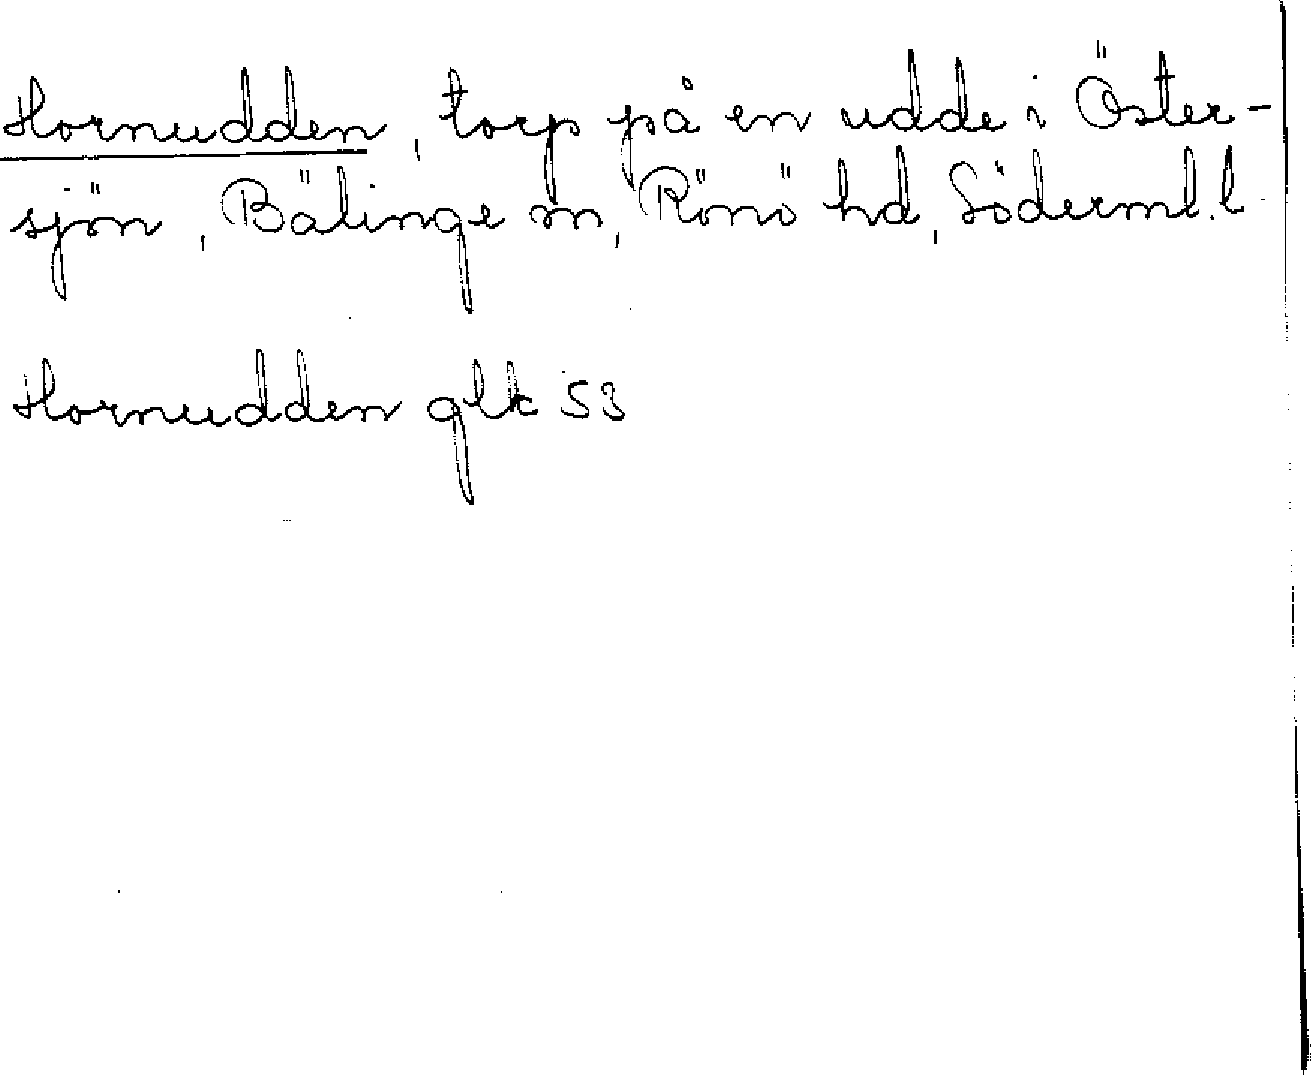 Hornudden, torp på en udde i Öster-
sjön, Bälinge sn, Rönö hd, Söderml. l
Hornudden glk 53